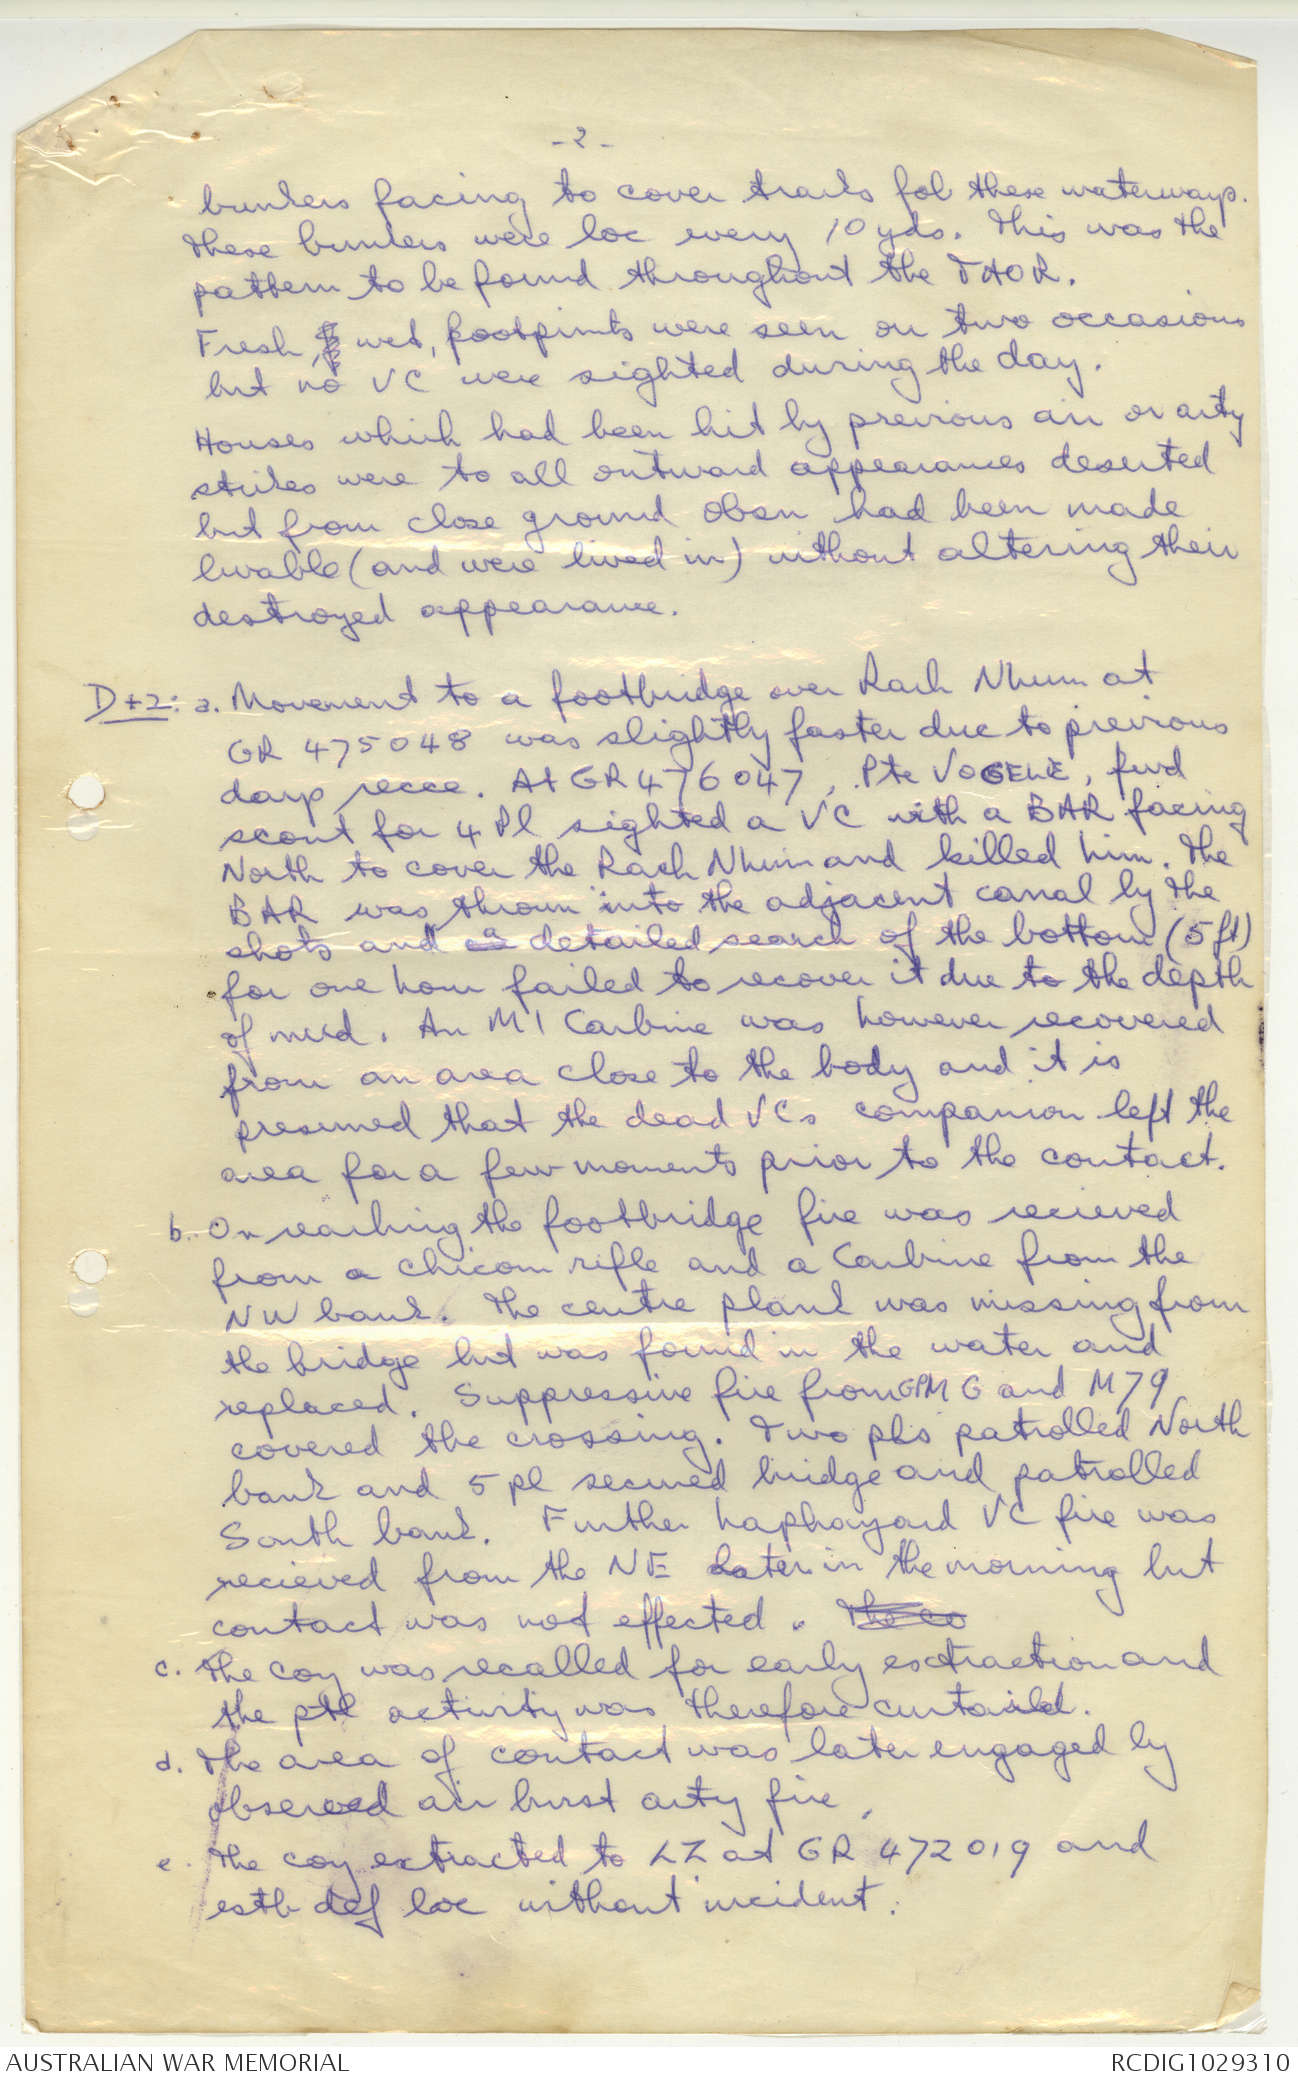 - 2 -
bunkers facing to cover tracks fol these waterways.
These bunkers were loc every 10 yds. This was the
pattern to be found throughout the TAOR.
Fresh, wet, footpints were seen on two occasions
but no VC were sighted during the day.
Houses which had been hit by previous air or arty
strikes were to all outward appearances deserted
but from close ground obsn had been made
livable (and were lived in) without altering their
destroyed appearance.
D+2: a. Movement to a footbridge over Rach Nhum at
GR 475048 was slightly faster due to previous
days recce. At GR 476047, Pte VOGELE, fwd
scout for 4 Pl sighted a VC with a BAR facing
North to cover the Rach Nhum and killed him. The
BAR was thrown into the adjacent canal by the
shots and a detailed search of the bottom (5 ft)
for one hour failed to recover it due to the depth
of mud. An M1 Carbine was however recovered
from an area close to the body and it is
presumed that the dead VCs companion left the
area for a few moments prior to the contact.
b. On reaching the footbridge fire was recieved
from a Chicom rifle and a Carbine from the
NW bank. The centre plank was missing from
the bridge but was found in the water and
replaced. Suppressive fire from GPMG and M79
covered the crossing. Two pls patrolled North
bank and 5 pl secured bridge and patrolled
South bank. Further haphazard VC fire was
recieved from the NE later in the morning but
contact was not effected. The co
c. The coy was recalled for early extraction and
the ptl activity was therefore curtailed.
d. The area of contact was later engaged by
observed air burst arty fire.
e. The coy extracted to LZ at GR 472019 and
estb def loc without incident.
AUSTRALIAN WAR MEMORIAL
RCDIG1029310